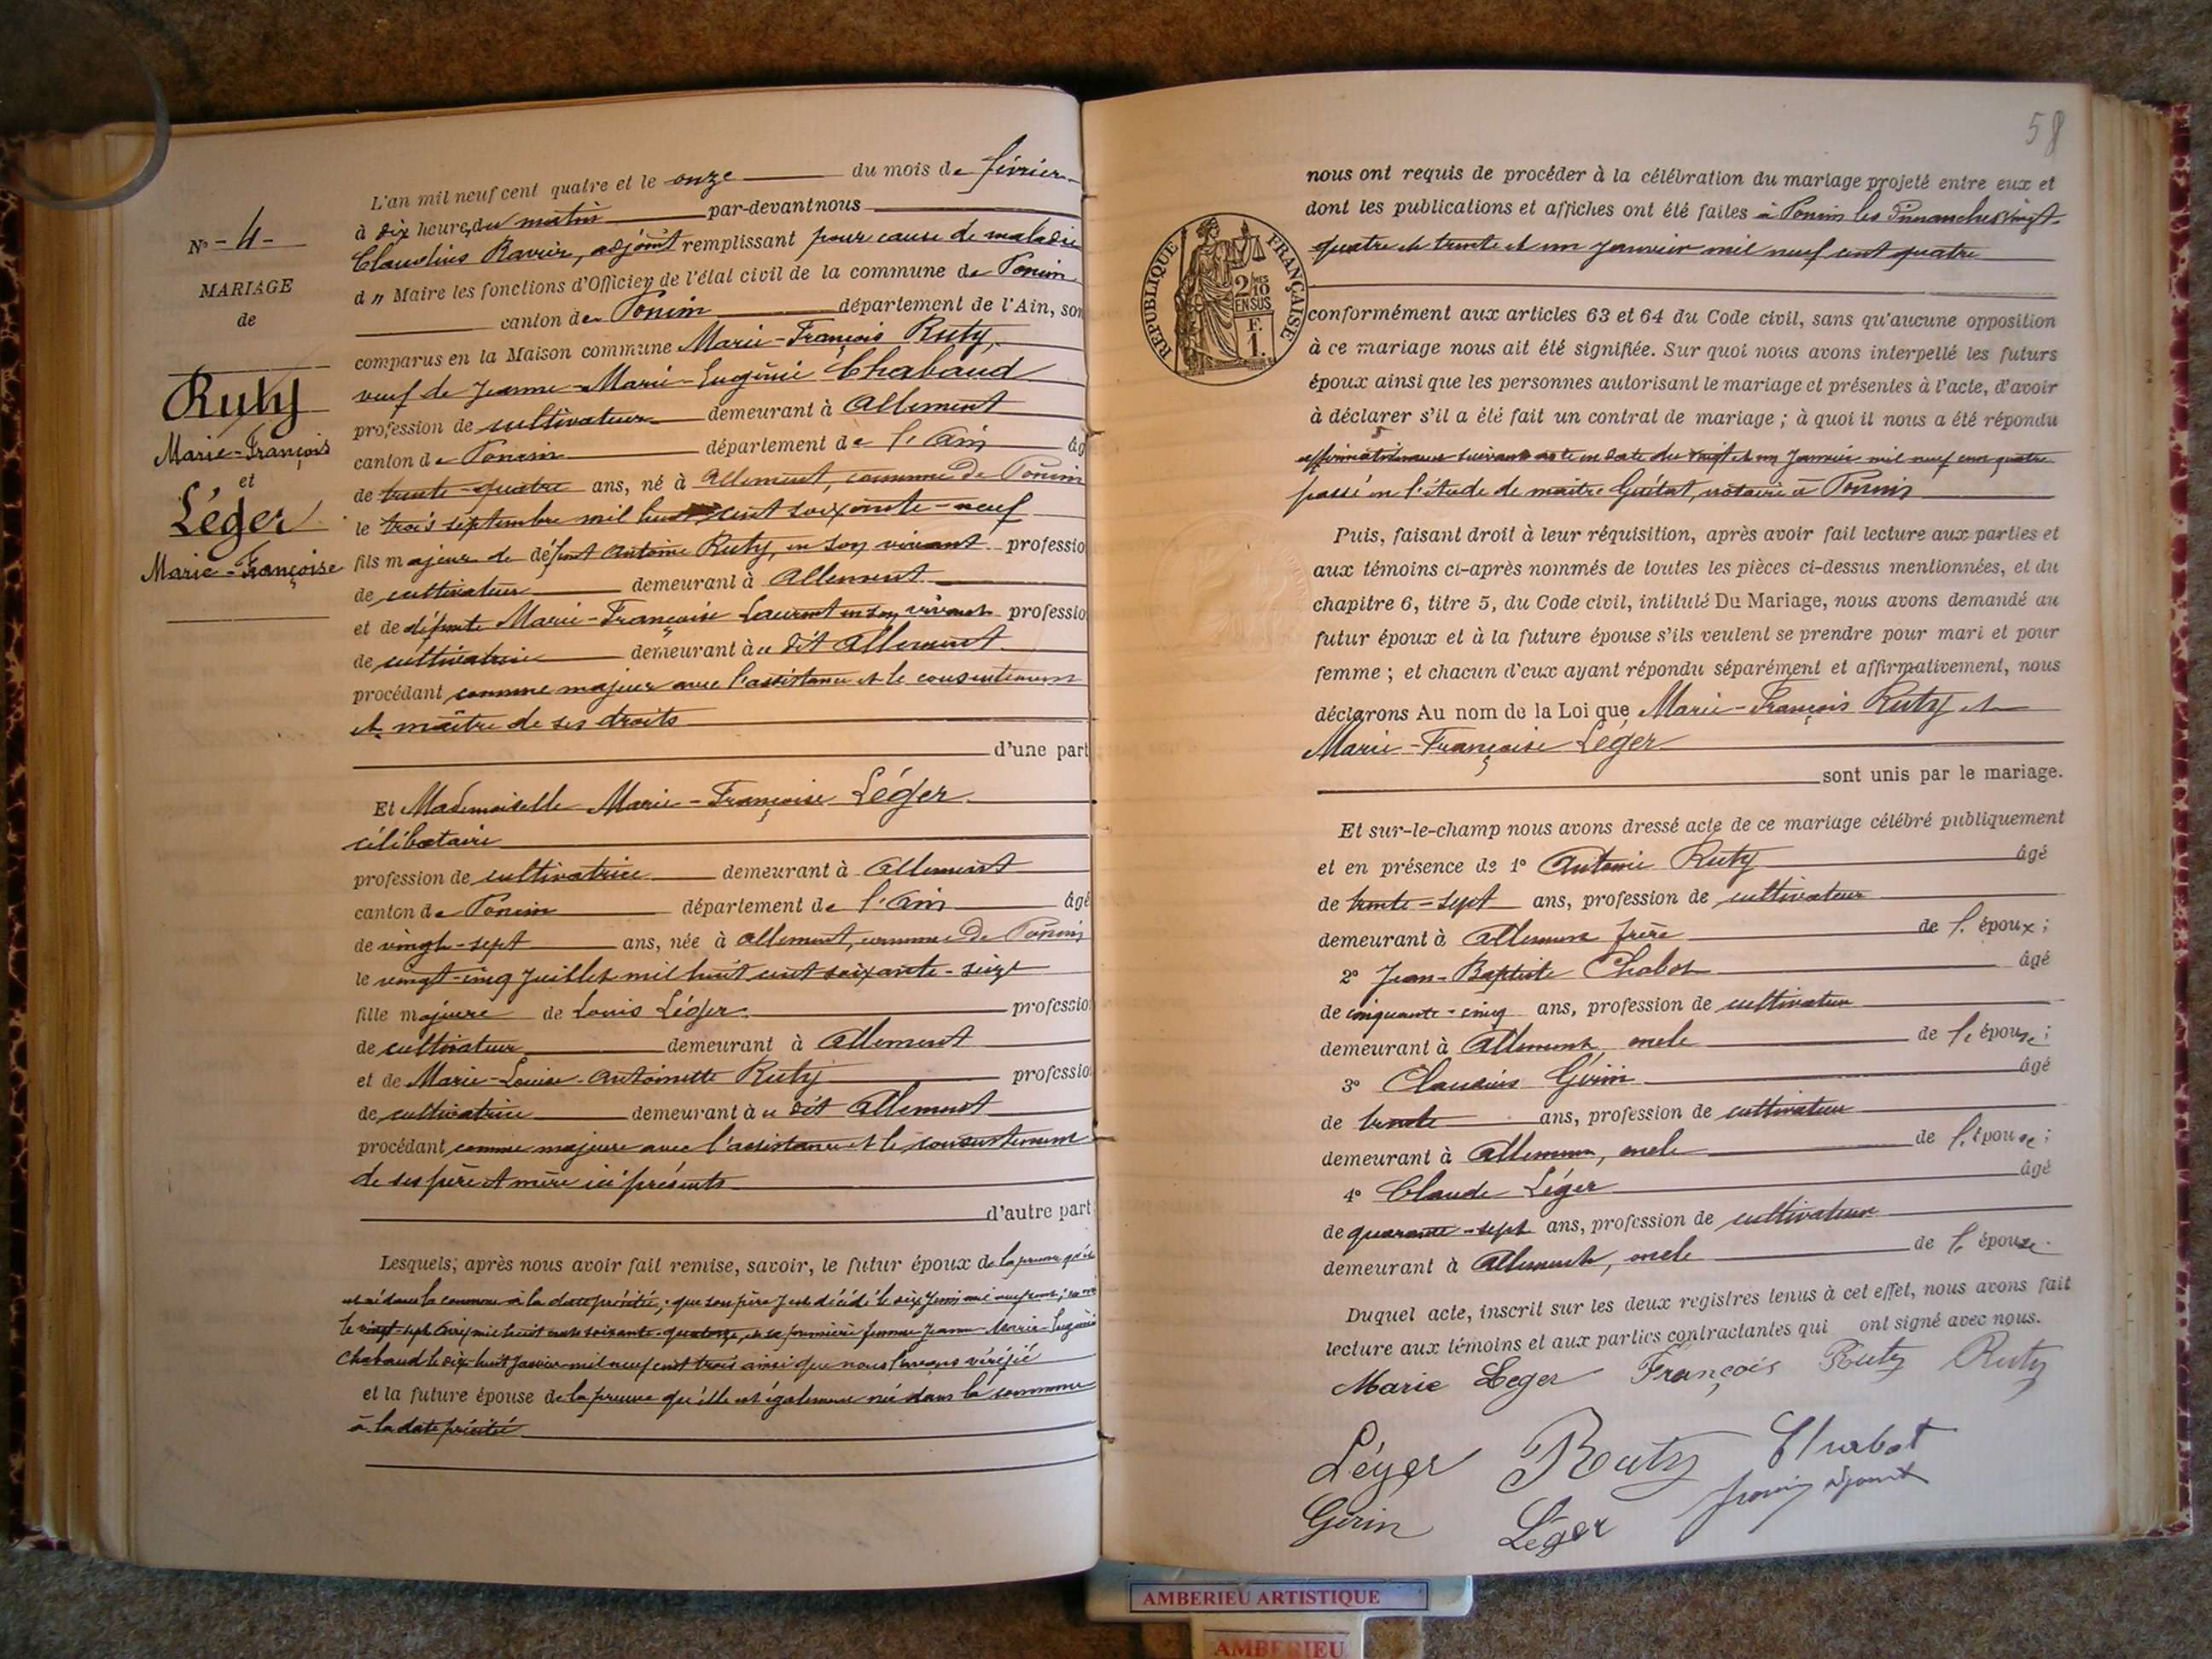 L'an mil neuf cent quatre et le onze du mois de février
à dix heures du matin par-devant nous
Claudius Ravier, adjoint remplissant pour cause de maladie
d " Maire les fonctions d'Officier de l'état civil de la commune de Poncin
canton de Poncin département de l'Ain, son
comparus en la Maison commune Marie-François Ruty,
veuf de Jeanne-Marie-Eugénie Chabaud
profession de cultivateur demeurant à Allement
canton de Poncin département de l'Ain âg
de trente-quatre ans, né à Allement, commune de Poncin
le trois septembre mil huit cent soixante-neuf
fils majeur de défunt Antoine Ruty, en son vivant professio
de cultivateur demeurant à Allement
et de défunte Marie-Françoise Laurent en son vivant professio
de cultivatrice demeurant à u dit Allement
procédant comme majeur avec l'assistance et le consentement
et maître de ses droits
d'une part
N° - 4 -
MARIAGE
de
Ruty
Marie-François
et
Léger
Marie-Françoise
Et Mademoiselle Marie-Françoise Léger
célibataire
profession de cultivatrice demeurant à Allement
canton de Poncin département de l'Ain âgé
de vingt-sept ans, née à Allement, commune de Poncin
le vingt-cinq Juillet mil huit cent soixante-seize
fille majeure de Louis Léger professio
de cultivateur demeurant à Allement
et de Marie-Louise-Antoinette Ruty professio
de cultivatrice demeurant à u dit Allement
procédant comme majeure avec l'assistance et le consentement
de ses père et mère ici présents
d'autre part
Lesquels; après nous avoir fait remise, savoir, le futur époux de la preuve qu'il
est né dans la commune à la date précitée, que son père y est décédé le six Juin mil neuf cent;
le vingt-sept mil huit cent soixante-quatorze, et sa première femme Jeanne-Marie-Eugénie
Chabaud le dix-huit Janvier mil neuf cent trois ainsi que nous l'avons vérifié
et la future épouse de la preuve qu'elle est également née dans la commune
à la date précitée
58
nous ont requis de procéder à la célébration du mariage projeté entre eux et
dont les publications et affiches ont été faites à Poncin les Dimanches vingt-
quatre et trente et un Janvier mil neuf cent quatre
REPUBLIQUE FRANÇAISE
2/10 EN SUS
F. 1.
conformément aux articles 63 et 64 du Code civil, sans qu'aucune opposition
à ce mariage nous ait été signifiée. Sur quoi nous avons interpellé les futurs
époux ainsi que les personnes autorisant le mariage et présentes à l'acte, d'avoir
à déclarer s'il a été fait un contrat de mariage; à quoi il nous a été répondu
affirmativement suivant acte en date du vingt et un Janvier mil neuf cent quatre
passé en l'étude de maître Guétat, notaire à Poncin
Puis, faisant droit à leur réquisition, après avoir fait lecture aux parties et
aux témoins ci-après nommés de toutes les pièces ci-dessus mentionnées, et du
chapitre 6, titre 5, du Code civil, intitulé Du Mariage, nous avons demandé au
futur époux et à la future épouse s'ils veulent se prendre pour mari et pour
femme; et chacun d'eux ayant répondu séparément et affirmativement, nous
déclarons Au nom de la Loi que Marie-François Ruty et
Marie-Françoise Léger
sont unis par le mariage.
Et sur-le-champ nous avons dressé acte de ce mariage célébré publiquement
et en présence de 1° Antoine Ruty âgé
de trente-sept ans, profession de cultivateur
demeurant à Allement frère de l' époux;
2° Jean-Baptiste Chabot âgé
de cinquante-cinq ans, profession de cultivateur
demeurant à Allement oncle de l' épouse;
3° Claudius Gérin âgé
de trente ans, profession de cultivateur
demeurant à Allement, oncle de l' épouse;
4° Claude Léger âgé
de quarante-sept ans, profession de cultivateur
demeurant à Allement, oncle de l' épouse.
Duquel acte, inscrit sur les deux registres tenus à cet effet, nous avons fait
lecture aux témoins et aux parties contractantes qui ont signé avec nous.
Marie Leger François Ruty Ruty
Léger Ruty Chabot
Gerin Léger adjoint
AMBERIEU ARTISTIQUE
AMBERIEU